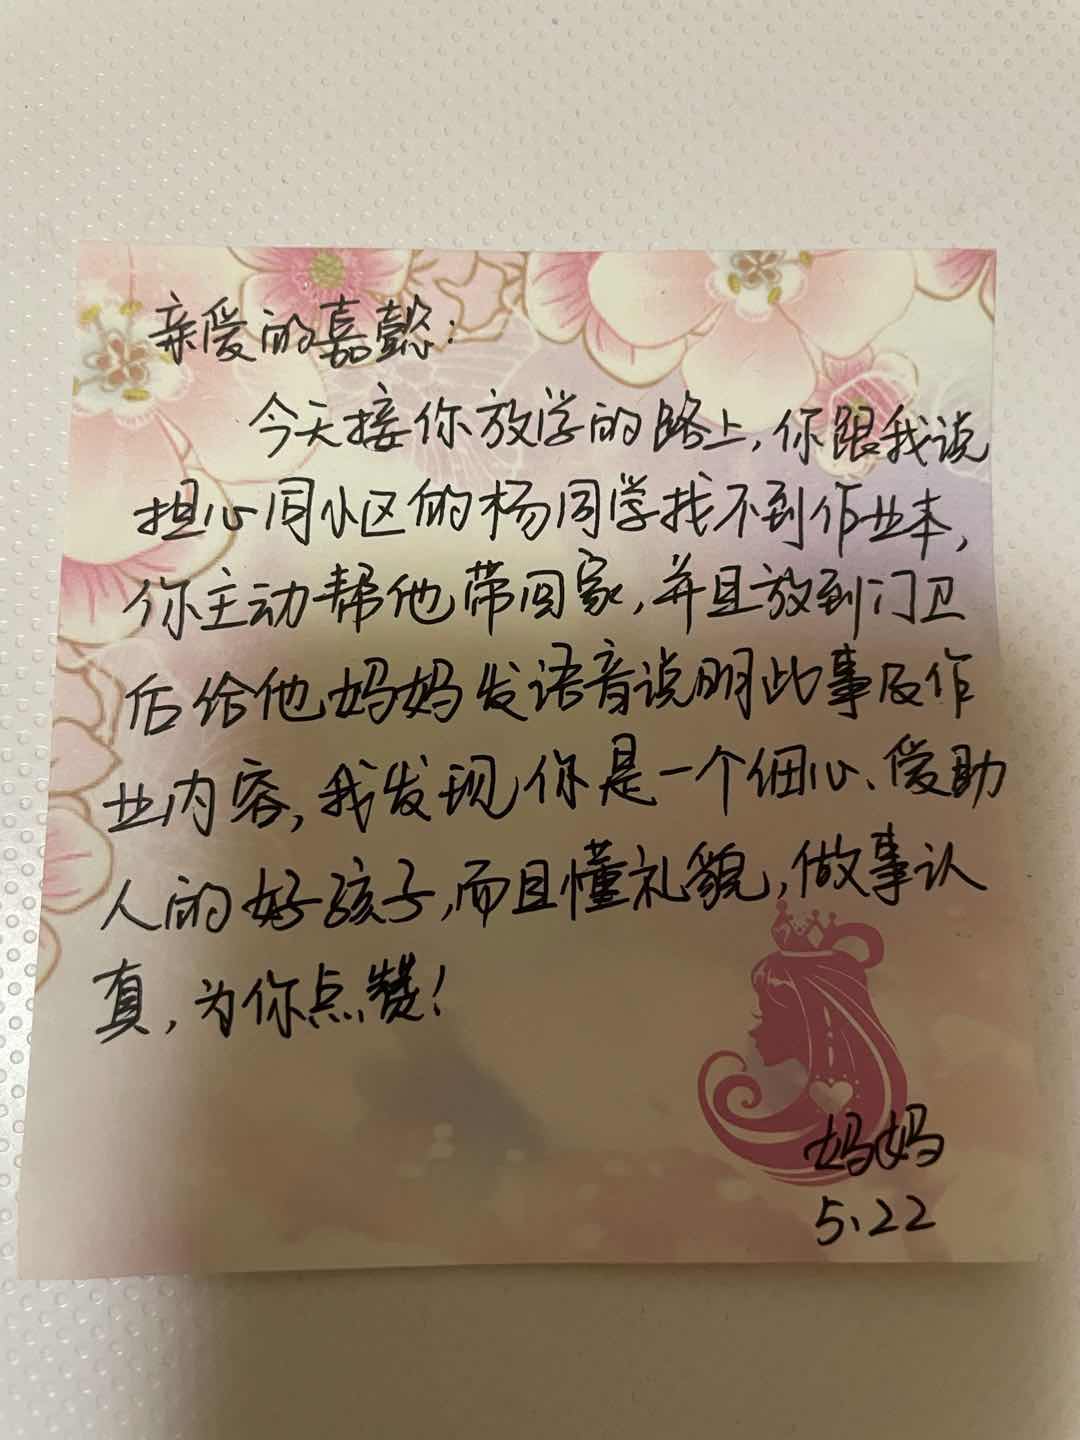 亲爱的嘉懿:
今天接你放学的路上,你跟我说
担心同小区的杨同学找不到作业本,
你主动帮他带回家,并且放到门卫
后给他妈妈发语音说明此事及作
业内容,我发现你是一个细心、爱助
人的好孩子,而且懂礼貌,做事认
真,为你点赞!
妈妈
5.22